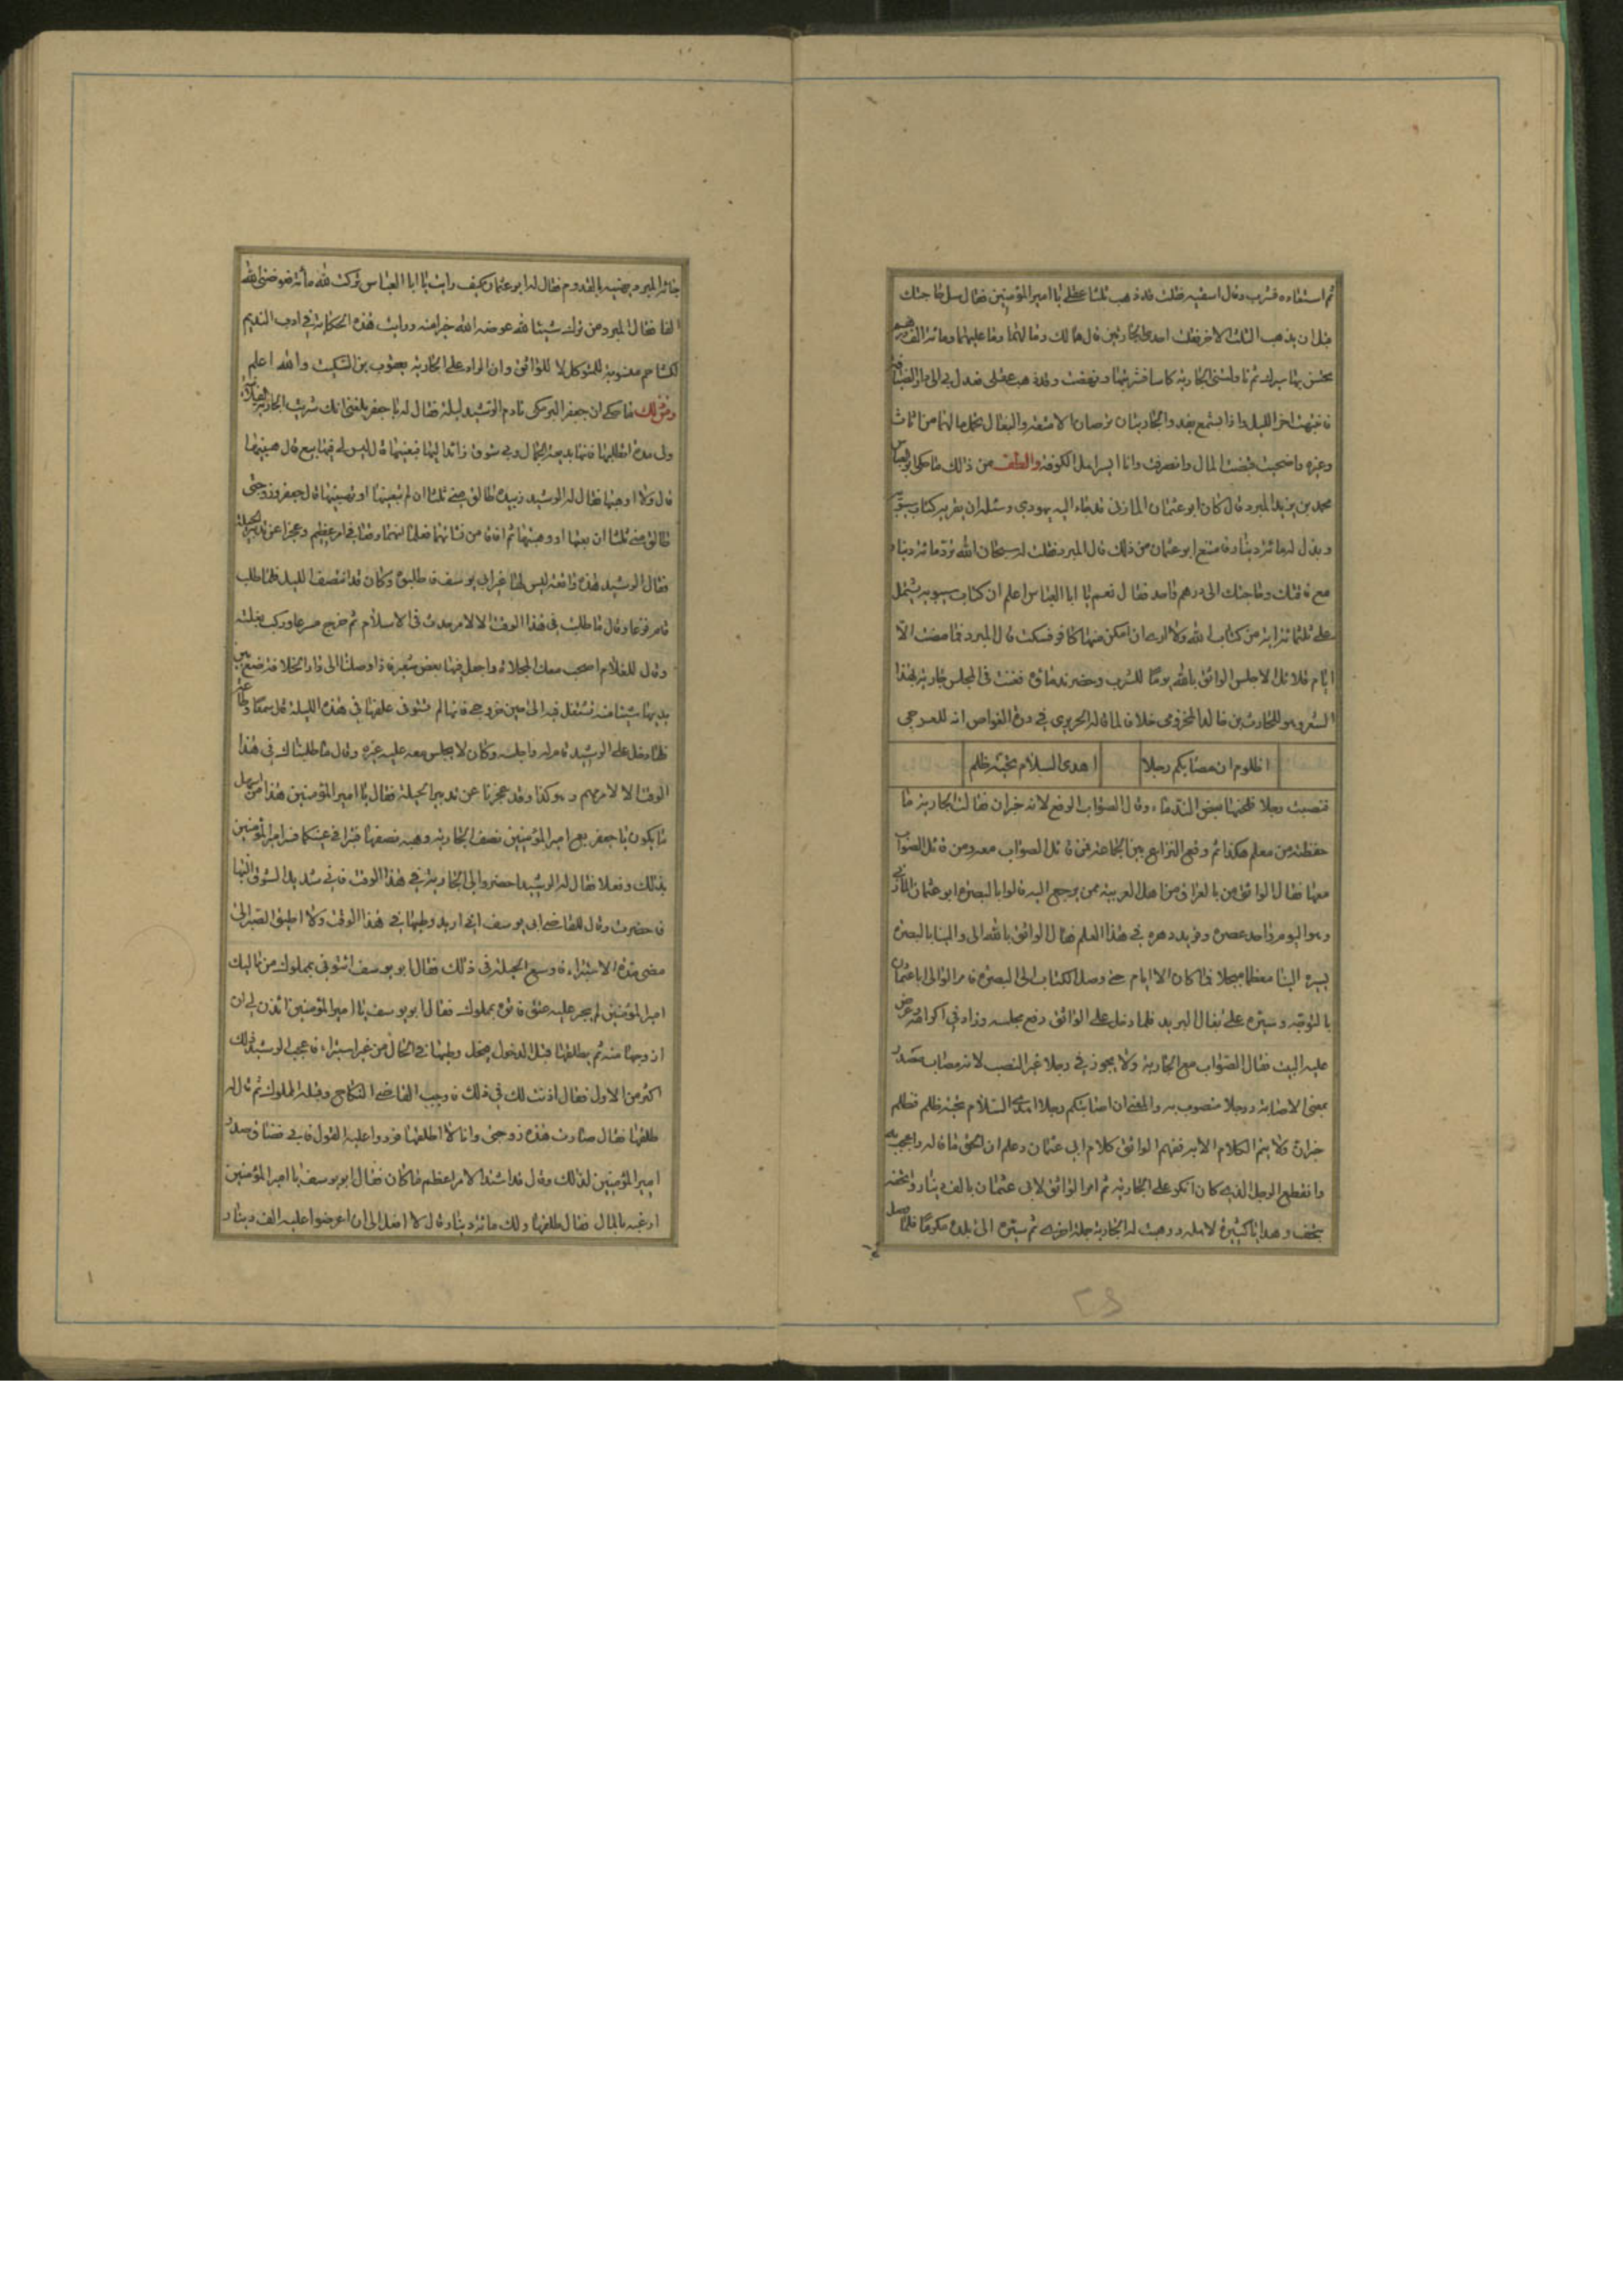 ثم استعاده فشرب وقال اسقيه فقلت قد ذهب ثلثا عقلي يا امير المؤمنين فقال سل حاجتك
قبل ان يذهب الثلث الاخر فقلت احدى الجاريتين قال هما لك وما لهما وما عليهما ومائة الف درهم
يحسن بها ثم ناولتني الجارية كاسا فشربتها ونهضت وقد ذهب عقلي فعدل بي الى دار
فانتبهت اخر الليل واذا بشمع يقد والجاريتان ترصان الامتعة والبغال تحمل ما لهما من اثاث
وغيره واصبحت قبضت المال وانصرفت وانا ايسر اهل الكوفة والطف من ذلك ما حكى ابو العباس
محمد بن يزيد المبرد قال كان ابو عثمان المازني قد جاء اليه يهودي وسئله ان يقريه كتاب سيبويه
وبذل له مائة دينار فامتنع ابو عثمان من ذلك قال المبرد فقلت له سبحان الله تردّ مائة دينار
مع فاقتك وحاجتك الى درهم واحد فقال نعم يا ابا العباس اعلم ان كتاب سيبويه يشتمل
على ثلثمائة اية من كتاب الله ولا ارى ان امكن منها كافر فسكت قال المبرد فما مضت الا
ايام قلائل الا جلس الواثق بالله يومًا للشرب وحضر ندمائه فغنت في المجلس جارية بهذا
الشعر وهو للحارث بن خالد المخزومى خلاف لما قاله الحريرى في درة الغواص انه للعرجى
اظلوم ان مصابكم رجلا اهدى السلام تحية ظلم
فنصبت رجلا فلحنها بعض الندماء وقال الصواب الرفع لانه خبر ان فقالت الجارية ما
حفظته من معلم هكذا ثم وقع النزاع بين الجماعة فمن قائل الصواب معه ومن قائل الصواب
معها فقال الواثق من بالعراق من اهل العربية ممن يرجع اليه قالوا بالبصرة ابو عثمان المازني
وهو اليوم واحد عصره وفريد دهره في هذا العلم فقال الواثق بالله الى والينا بالبصرة
يسيره الينا معظما مبجلا فما كان الا ايام حتى وصل الكتاب الى البصرة فامر الوالى ابا عثمان
بالتوجه وسيره على بغال البريد فلما دخل على الواثق رفع مجلسه وزاد في اكرامه وعرض
عليه البيت فقال الصواب مع الجارية ولا يجوز في رجلا غير النصب لانه مصاب مصدر
بمعنى الاصابة ورجلا منصوب به والمعنى ان اصابتكم رجلا اهدى السلام تحية ظلم فظلم
خبر ان ولا يتم الكلام الا به ففهم الواثق كلام ابي عثمان وعلم ان الحق ما قاله واعجب به
وانقطع الرجل الذى كان انكر على الجارية ثم امر الواثق لابي عثمان بالف دينار واتحفه
بتحف وهدايا كثيرة لاهله ووهبت له الجارية جملة اخرى ثم سيره الى بلده مكرمًا فلما وصل
جائه المبرد يهنيه بالقدوم فقال له ابو عثمان كيف رايت يا ابا العباس تركت لله مائة فعوضني الله
الفا فقال المبرد من ترك شيئا لله عوضه الله خيرا منه ورايت هذه الحكاية في ادب النديم
لكشاجم منسوبة للمتوكل لا للواثق وان الراد على الجارية يعقوب بن السكيت والله اعلم
ومن ذلك ما حكى ان جعفر البرمكى نادم الرشيد ليلة فقال له يا جعفر بلغني انك شريت الجارية الفلانة
ولى مدة اتطلبها فانها بديعة الجمال وبي شوق زائد اليها فبعنيها قال ليس لي فيها بيع قال هبنيها
قال ولا اهبها فقال له الرشيد زبيدة طالق مني ثلثا ان لم تبعنيها او تهبنيها قال جعفر وزوجتي
طالق مني ثلثا ان بعتها او وهبتها ثم افاقا من نشاتهما فعلما انهما وقعا في امر عظيم وعجزا عن تدبير الحيلة
فقال الرشيد هذه واقعة ليس لها غير ابي يوسف فاطلبوه وكان قد انتصف الليل فلما طلب
قام فزعا وقال ما طلبت في هذا الوقت الا لامر حدث في الاسلام ثم خرج مسرعا وركب بغلته
وقال للغلام اصحب معك المخلاة واجعل فيها بعض شعير فاذا وصلنا الى دار الخلافة فضع بين
يديها شيئا منه تشتغل فيه الى حين خروجى فانها لم تستوف علفها في هذه الليلة قال سمعًا وطاعة
فلما دخل على الرشيد قام له واجلسه وكان لا يجلس معه عليه غيره وقال ما طلبناك في هذا
الوقت الا لامر مهم وهو كذا وقد عجزنا عن تدبير الحيلة فقال يا امير المؤمنين هذا من اسهل
ما يكون يا جعفر بع امير المؤمنين نصف الجارية وهبه نصفها تبرا في يمينكما فسر امير المؤمنين
بذلك وفعلا فقال له الرشيد احضروا الى الجارية في هذا الوقت فاني شديد الشوق اليها
فحضرت وقال للقاضى ابى يوسف اني اريد وطيها في هذا الوقت ولا اطيق الصبر الى
مضى مدة الاستبراء فاوسع الحيلة في ذلك فقال ابو يوسف ائتوني بمملوك من مماليك
امير المؤمنين لم يجر عليه عتق فاتوه بمملوك فقال ابو يوسف يا امير المؤمنين تاذن لي ان
ازوجها منه ثم يطلقها قبل الدخول فيحل وطيها في الحال من غير استبراء فاعجب الرشيد ذلك
اكثر من الاول فقال اذنت لك في ذلك فاوجب القاضى النكاح وقبله المملوك ثم قال له
طلقها فقال صارت هذه زوجتي وانا لا اطلقها فرددوا عليه القول فابى فضاق صدر
امير المؤمنين لذلك وقال قد اشتد الامر اعظم ما كان فقال ابو يوسف يا امير المؤمنين
ارغبه بالمال فقال طلقها ولك مائة دينار قال لا افعل الى ان اعرضوا عليه الف دينار